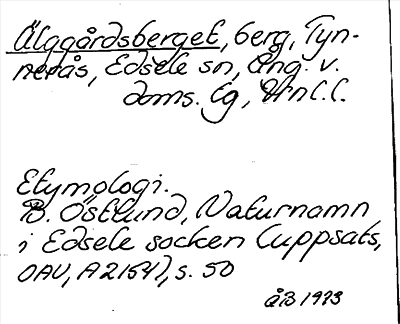 Älggårdsberget, berg, Tyn-
nerås, Edsele sn, Ång. v.
doms. lg, Vnl.L.
Etymologi.
B. Östlund, Naturnamn
i Edsele socken (uppsats,
OAU, A 2154), s. 50
ÅB 1973